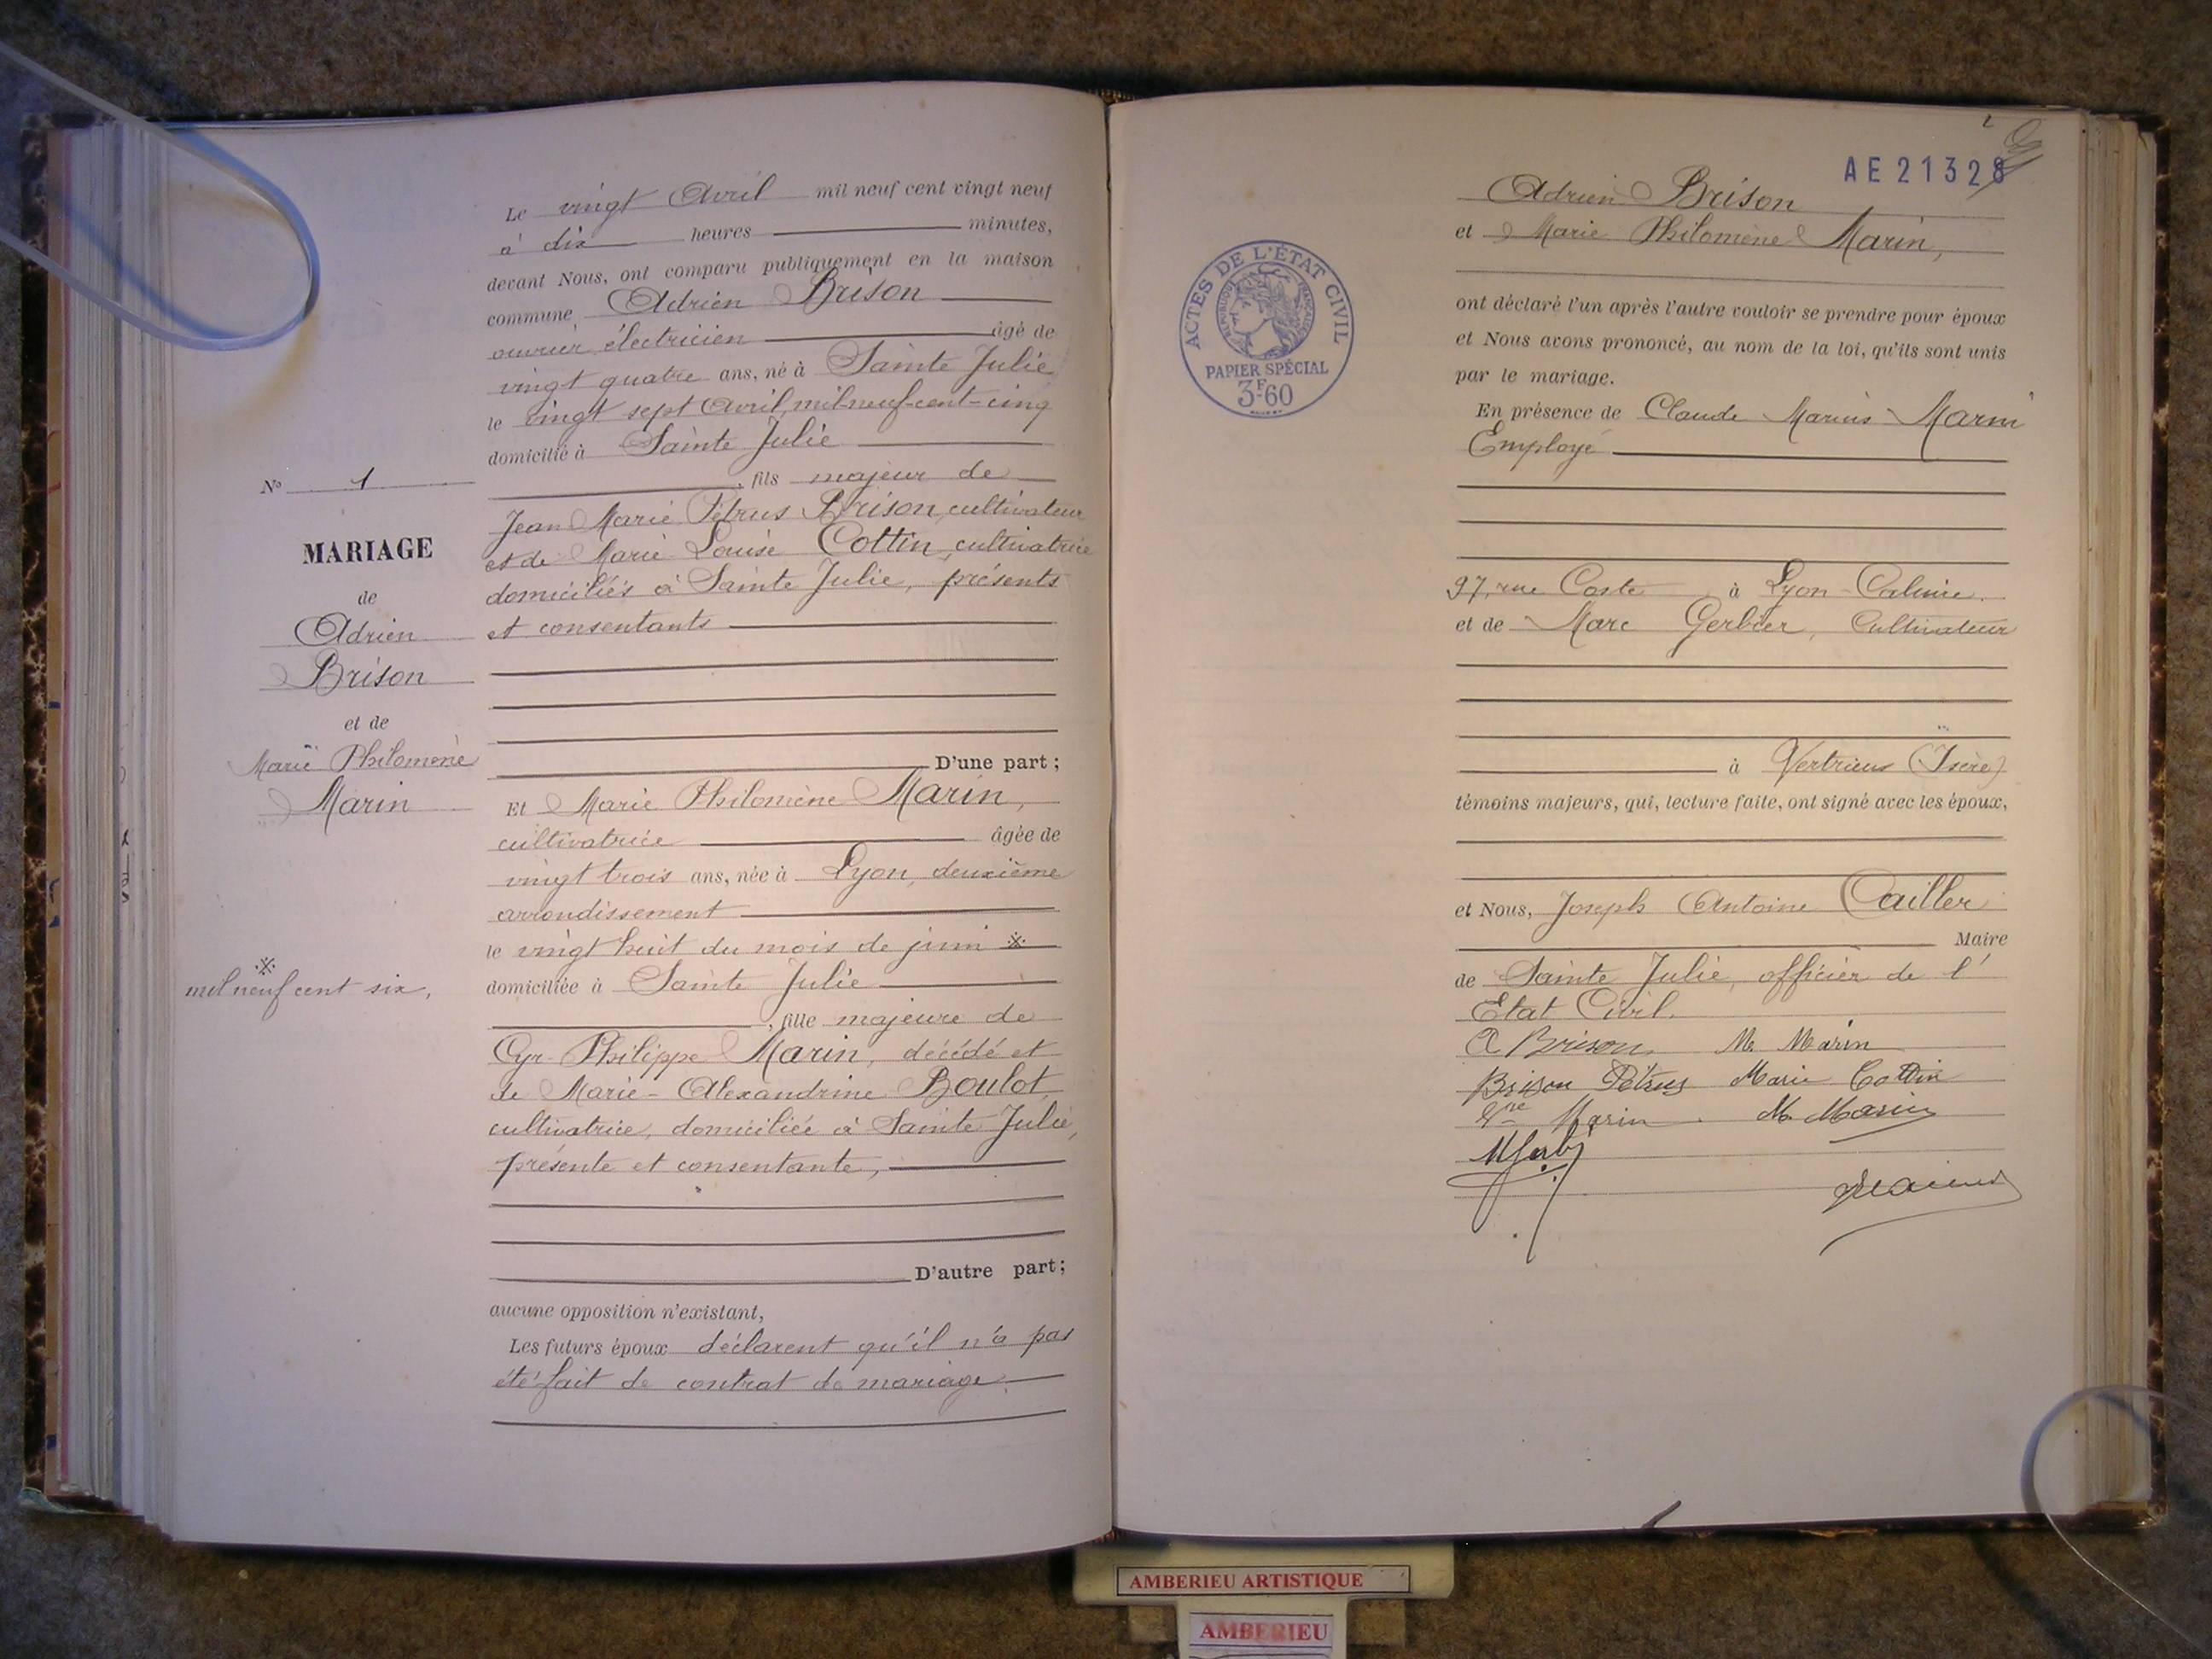 Le vingt Avril mil neuf cent vingt neuf
à dix heures minutes,
devant Nous, ont comparu publiquement en la maison
commune Adrien Brison
ouvrier électricien âgé de
vingt quatre ans, né à Sainte Julie
le vingt sept Avril, mil-neuf-cent-cinq
domicilié à Sainte Julie
, fils majeur de
Jean Marie Pétrus Brison, cultivateur
et de Marie Louise Cottin, cultivatrice
domiciliés à Sainte Julie, présents
et consentants
D'une part ;
Et Marie Philomène Marin,
cultivatrice âgée de
vingt trois ans, née à Lyon, deuxième
arrondissement
le vingt huit du mois de juin ※
domiciliée à Sainte Julie
, fille majeure de
Cyr-Philippe Marin, décédé et
de Marie-Alexandrine Boulot,
cultivatrice, domiciliée à Sainte Julie,
présente et consentante,
D'autre part ;
aucune opposition n'existant,
Les futurs époux déclarent qu'il n'a pas
été fait de contrat de mariage.
N° 1
MARIAGE
de
Adrien
Brison
et de
Marie Philomène
Marin
※
mil neuf cent six,
AE 21328
Adrien Brison
et Marie Philomène Marin,
ont déclaré l'un après l'autre vouloir se prendre pour époux
et Nous avons prononcé, au nom de la loi, qu'ils sont unis
par le mariage.
En présence de Claude Marius Marin
Employé
97, rue Coste à Lyon-Caluire.
et de Marc Gerbier, Cultivateur
à Vertrieu (Isère)
témoins majeurs, qui, lecture faite, ont signé avec les époux,
et Nous, Joseph Antoine Cailler
Maire
de Sainte Julie, officier de l'
Etat Civil.
A Brison M. Marin
Brison Pétrus Marie Cottin
Vve Marin M. Marin
ACTES DE L'ÉTAT CIVIL
RÉPUBLIQUE FRANÇAISE
PAPIER SPÉCIAL
3F60
AMBERIEU ARTISTIQUE
AMBERIEU